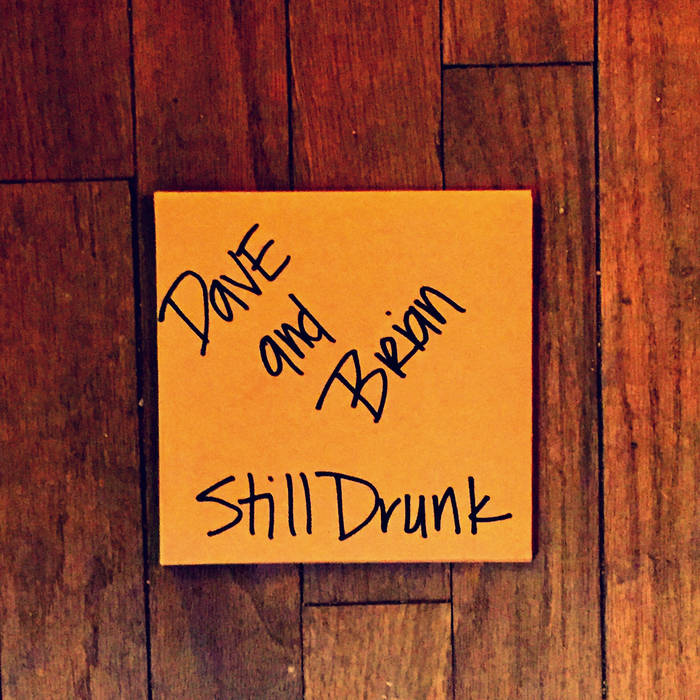 Dave
and
Brian
Still Drunk